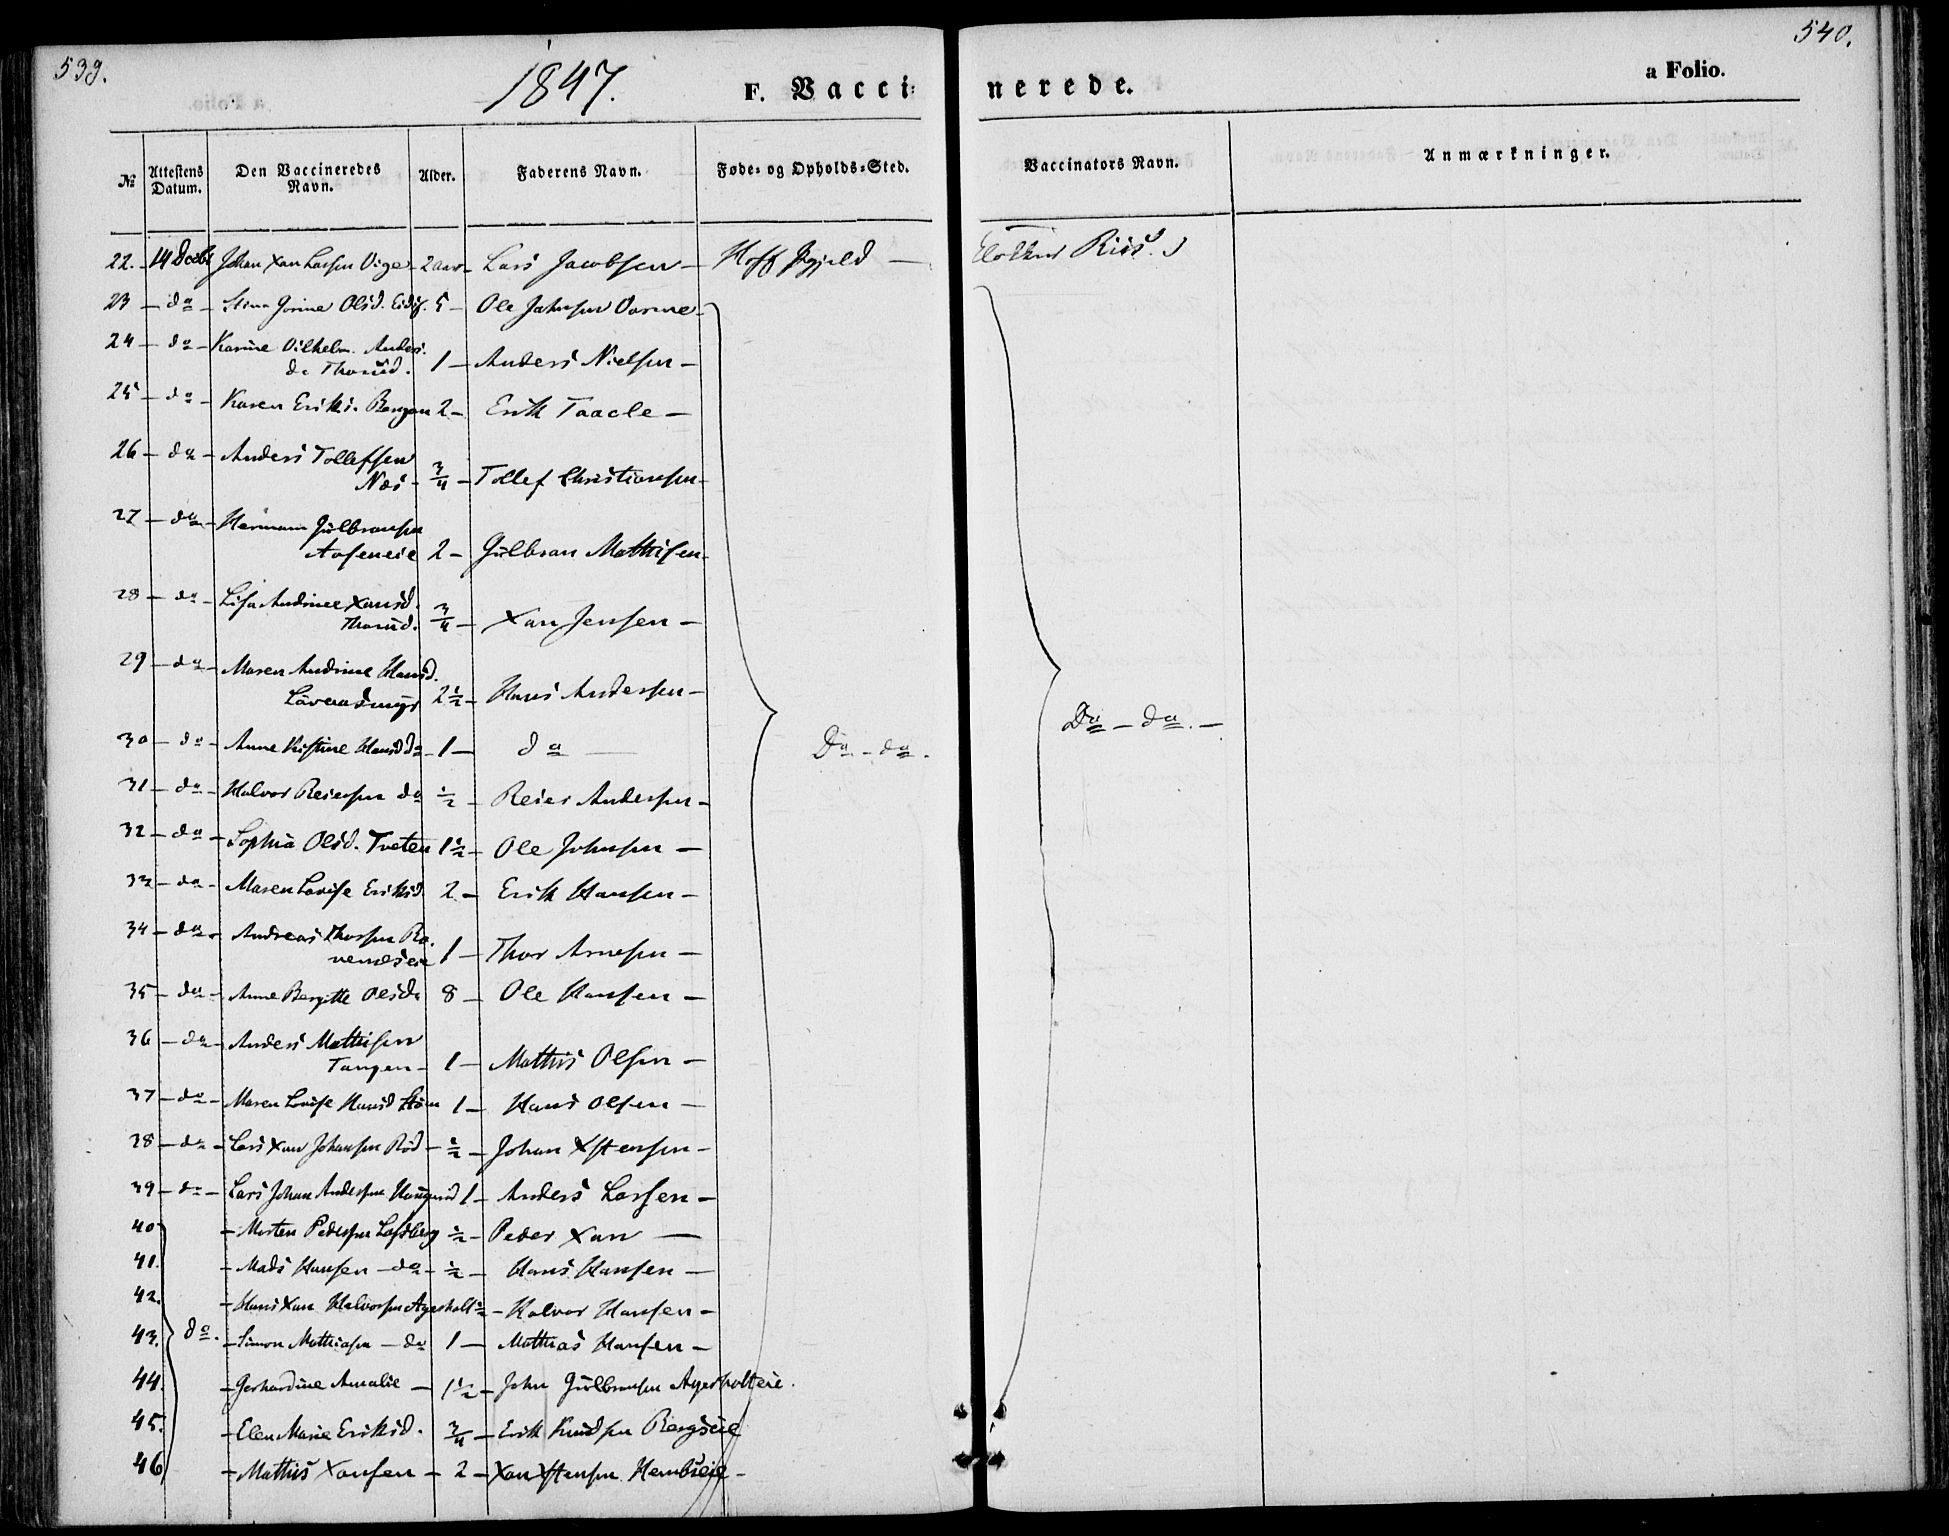 539.
1847.
F. Vacci=
nerede.
a Folio.
540.
№ Attestens Datum. Den Vaccineredes Navn. Alder. Faderens Navn. Føde= og Opholds=Sted. Vaccinators Navn. Anmærkninger.
22. 14 Decbr Johan Xan Larsen 2 aar Lars Jacobsen Hoff Pgjeld Klokker Riis
23 do Olsd. 5 Ole Johnsen
24 do Karine Vilhelm. Anders.
d. Thorud. 1 Anders Nielsen
25 do Karen Eriks. 2 Erik Taacle
26 do Anders Tollefsen
Næs 3/4 Tollef Christiansen
27 do Herman Gulbransen
Aaseneie 2 Gulbran Mathisen
28 do Lisa Andrine Xansd.
Thorud. 3/4 Xan Jensen
29 do Maren Andrine Hansd.
2 1/2 Hans Andersen
30 do Anne Kristine Hansd do 1 do
Do - do.
Do - do.
31 do Halvor Reiersen do 1/2 Reier Andersen
32 do Sophia Olsd. Tveten 1 1/2 Ole Johnsen
33 do Maren Lovise Eriksd. 2 Erik Hansen
34 do Andreas Thorsen
1 Thor Arnesen
35 do Anne Bergitte Olsd. 8 Ole Hansen
36 do Anders Mathisen
Tangen 1 Mathis Olsen
37 do Maren Lovise Hansd 1 Hans Olsen
38 do Lars Xan Johansen Rød 1/2 Johan Xstensen
39 do Lars Johan Andersen Haugerud 1 Anders Larsen
40 Morten Pedersen 1/2 Peder Xan
41. Mads Hansen do 1/2 Hans Hansen
42. Hans Xan Halvorsen Agerholt 1/2 Halvor Hansen
43. do. Simon Mathiasen do 1 Mathias Hansen
44. Gerhardine Amalie 1 1/2 John Gulbransen Agerholteie.
45. Elen Marie Eriksd. 3/4 Erik Knudsen Bergseie
46 Mathis Xansen 2 Xan Xstensen